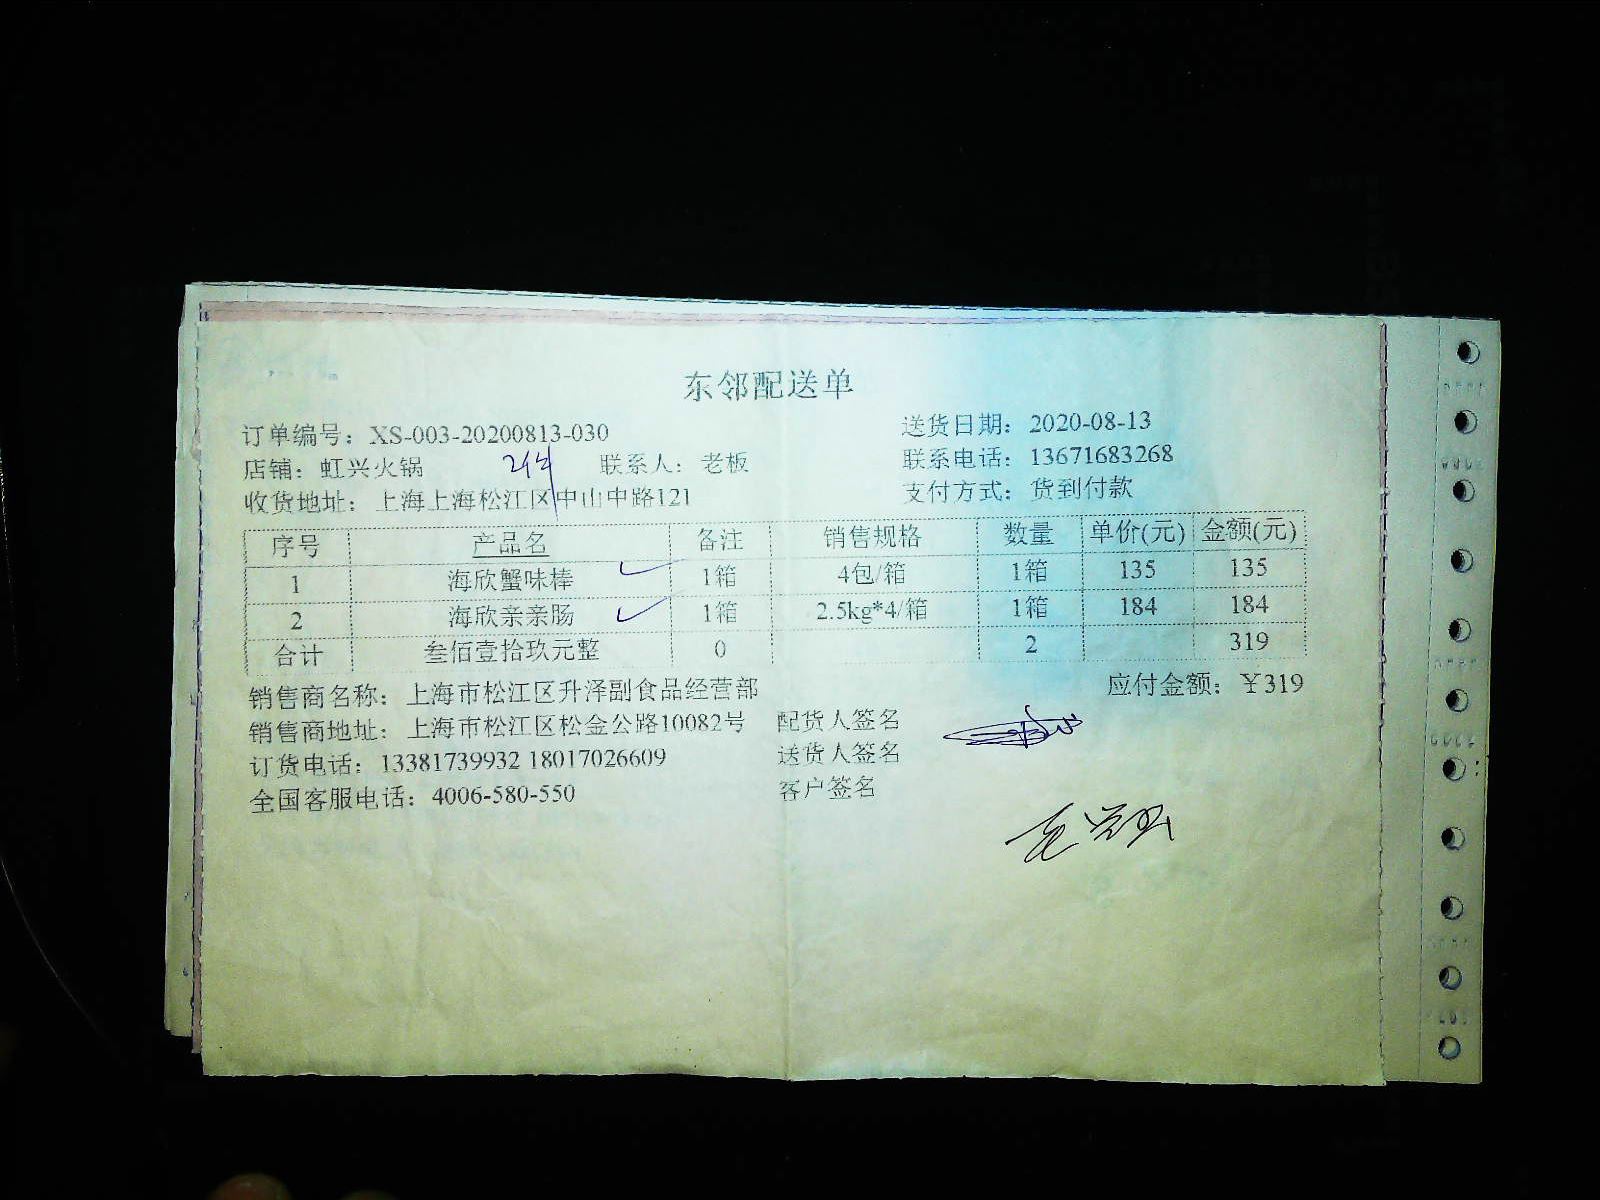 东邻配送单
订单编号：XS-003-20200813-030 送货日期：2020-08-13
店铺：虹兴火锅 联系人：老板 联系电话：13671683268
收货地址：上海上海松江区中山中路121 支付方式：货到付款
序号 产品名 备注 销售规格 数量 单价(元) 金额(元)
1 海欣蟹味棒 1箱 4包/箱 1箱 135 135
2 海欣亲亲肠 1箱 2.5kg*4/箱 1箱 184 184
合计 叁佰壹拾玖元整 0 2 319
销售商名称：上海市松江区升泽副食品经营部 应付金额：￥319
销售商地址：上海市松江区松金公路10082号 配货人签名
订货电话：13381739932 18017026609 送货人签名
全国客服电话：4006-580-550 客户签名